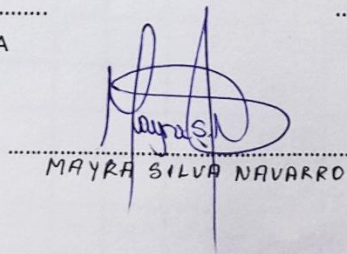 A
Mayra S.N
MAYRA SILVA NAVARRO